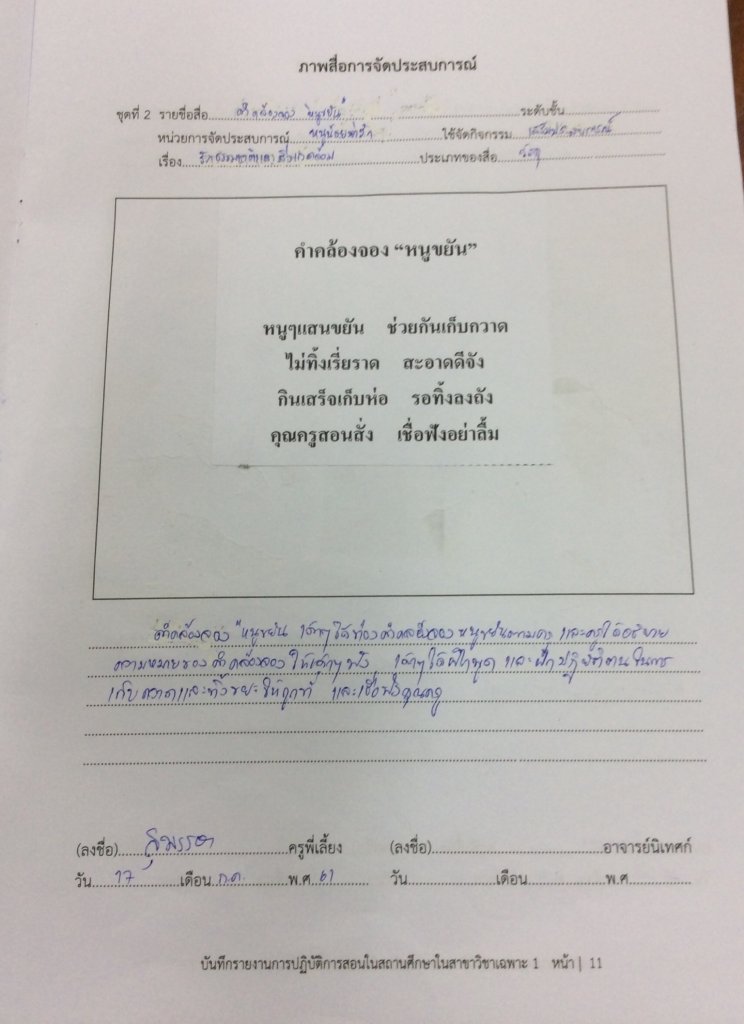 ภาพสื่อการจัดประสบการณ์
ชุดที่ 2 รายชื่อสื่อ คำคล้องจอง "หนูขยัน" ระดับชั้น
หน่วยการจัดประสบการณ์ หนูน้อยน่ารัก ใช้จัดกิจกรรม เสริมประสบการณ์
เรื่อง ประเภทของสื่อ วัสดุ
คำคล้องจอง “หนูขยัน”
หนูๆแสนขยัน ช่วยกันเก็บกวาด
ไม่ทิ้งเรี่ยราด สะอาดดีจัง
กินเสร็จเก็บห่อ รอทิ้งลงถัง
คุณครูสอนสั่ง เชื่อฟังอย่าลื้ม
คำคล้องจอง "หนูขยัน เด็กๆได้ท่องคำคล้องจอง หนูขยันตามครู และครูได้อธิบาย
ความหมายของ คำคล้องจอง ให้เด็กๆฟัง เด็กๆได้ฝึกพูด และฝึกปฏิบัติตนในการ
เก็บกวาดและทิ้งขยะให้ถูกที่ และเชื่อฟังคุณครู
(ลงชื่อ) ครูพี่เลี้ยง (ลงชื่อ) อาจารย์นิเทศก์
วัน 17 เดือน ก.ค. พ.ศ. 61 วัน เดือน พ.ศ.
บันทึกรายงานการปฏิบัติการสอนในสถานศึกษาในสาขาวิชาเฉพาะ 1 หน้า | 11